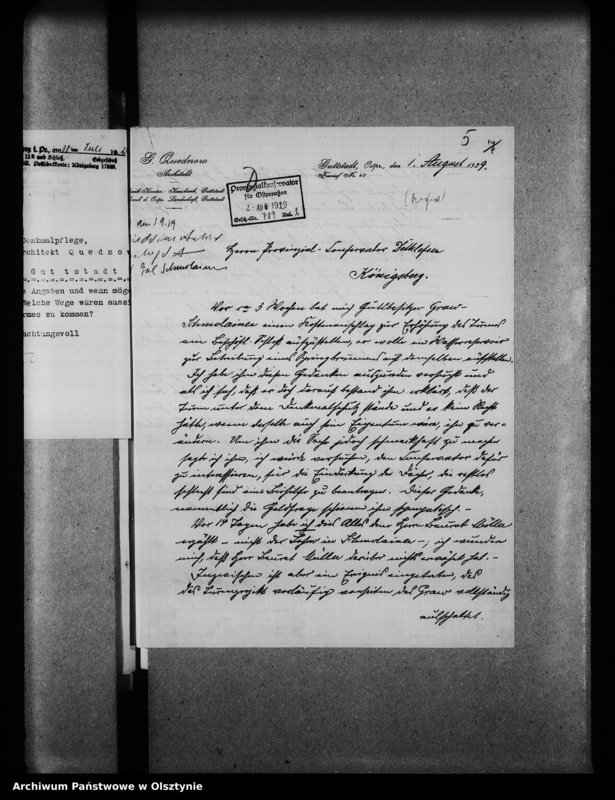 5
G. Quednow
Architekt
Guttstadt, Ostpr., den 1. August 1919.
Provinzialkonservator
für Ostpreußen
2-AUG 1919
709
Herrn Provinzial-Conservator Dethlefsen
Königsberg.
Vor ca 3 Wochen bat mich Gutsbesitzer Graw-
einen Kostenanschlag zur Erhöhung des Turmes
am Bischöfl. Schloß aufzustellen, er wolle ein Wasserreservoir
zur Betreibung eines Springbrunnens auf demselben aufstellen.
Ich habe ihm diesen Gedanken auszureden versucht und
als ich sah, daß er doch darauf bestand ihm erklärt, daß der
Turm unter dem Denkmalschutz stände und er kein Recht
hätte, wenn derselbe auch sein Eigentum wäre, ihn zu ver-
ändern. Um ihm die Sache jedoch schmackhaft zu machen
sagte ich ihm, ich würde versuchen, den Conservator dafür
zu interessieren, für die Eindeckung der Dächer, die
schlecht sind eine Beihilfe zu beantragen. Dieser Gedanke,
namentlich die Geldfrage schien ihm sympatisch. -
Vor 14 Tagen habe ich dies Alles dem Herrn Baurat Müller
erzählt - nicht der -, ich wundere
mich, daß Herr Baurat Müller darüber nichts erwähnt hat. -
Inzwischen ist aber ein Ereignis eingetreten, das
das Turmprojekt vorläufig von Seiten des Graw vollständig
ausschaltet.
Juli
Denkmalpflege,
Architekt Quednow
Guttstadt
Angaben und wenn mög
Welche Wege wären
rmes zu kommen?
achtungsvoll
Archiwum Państwowe w Olsztynie